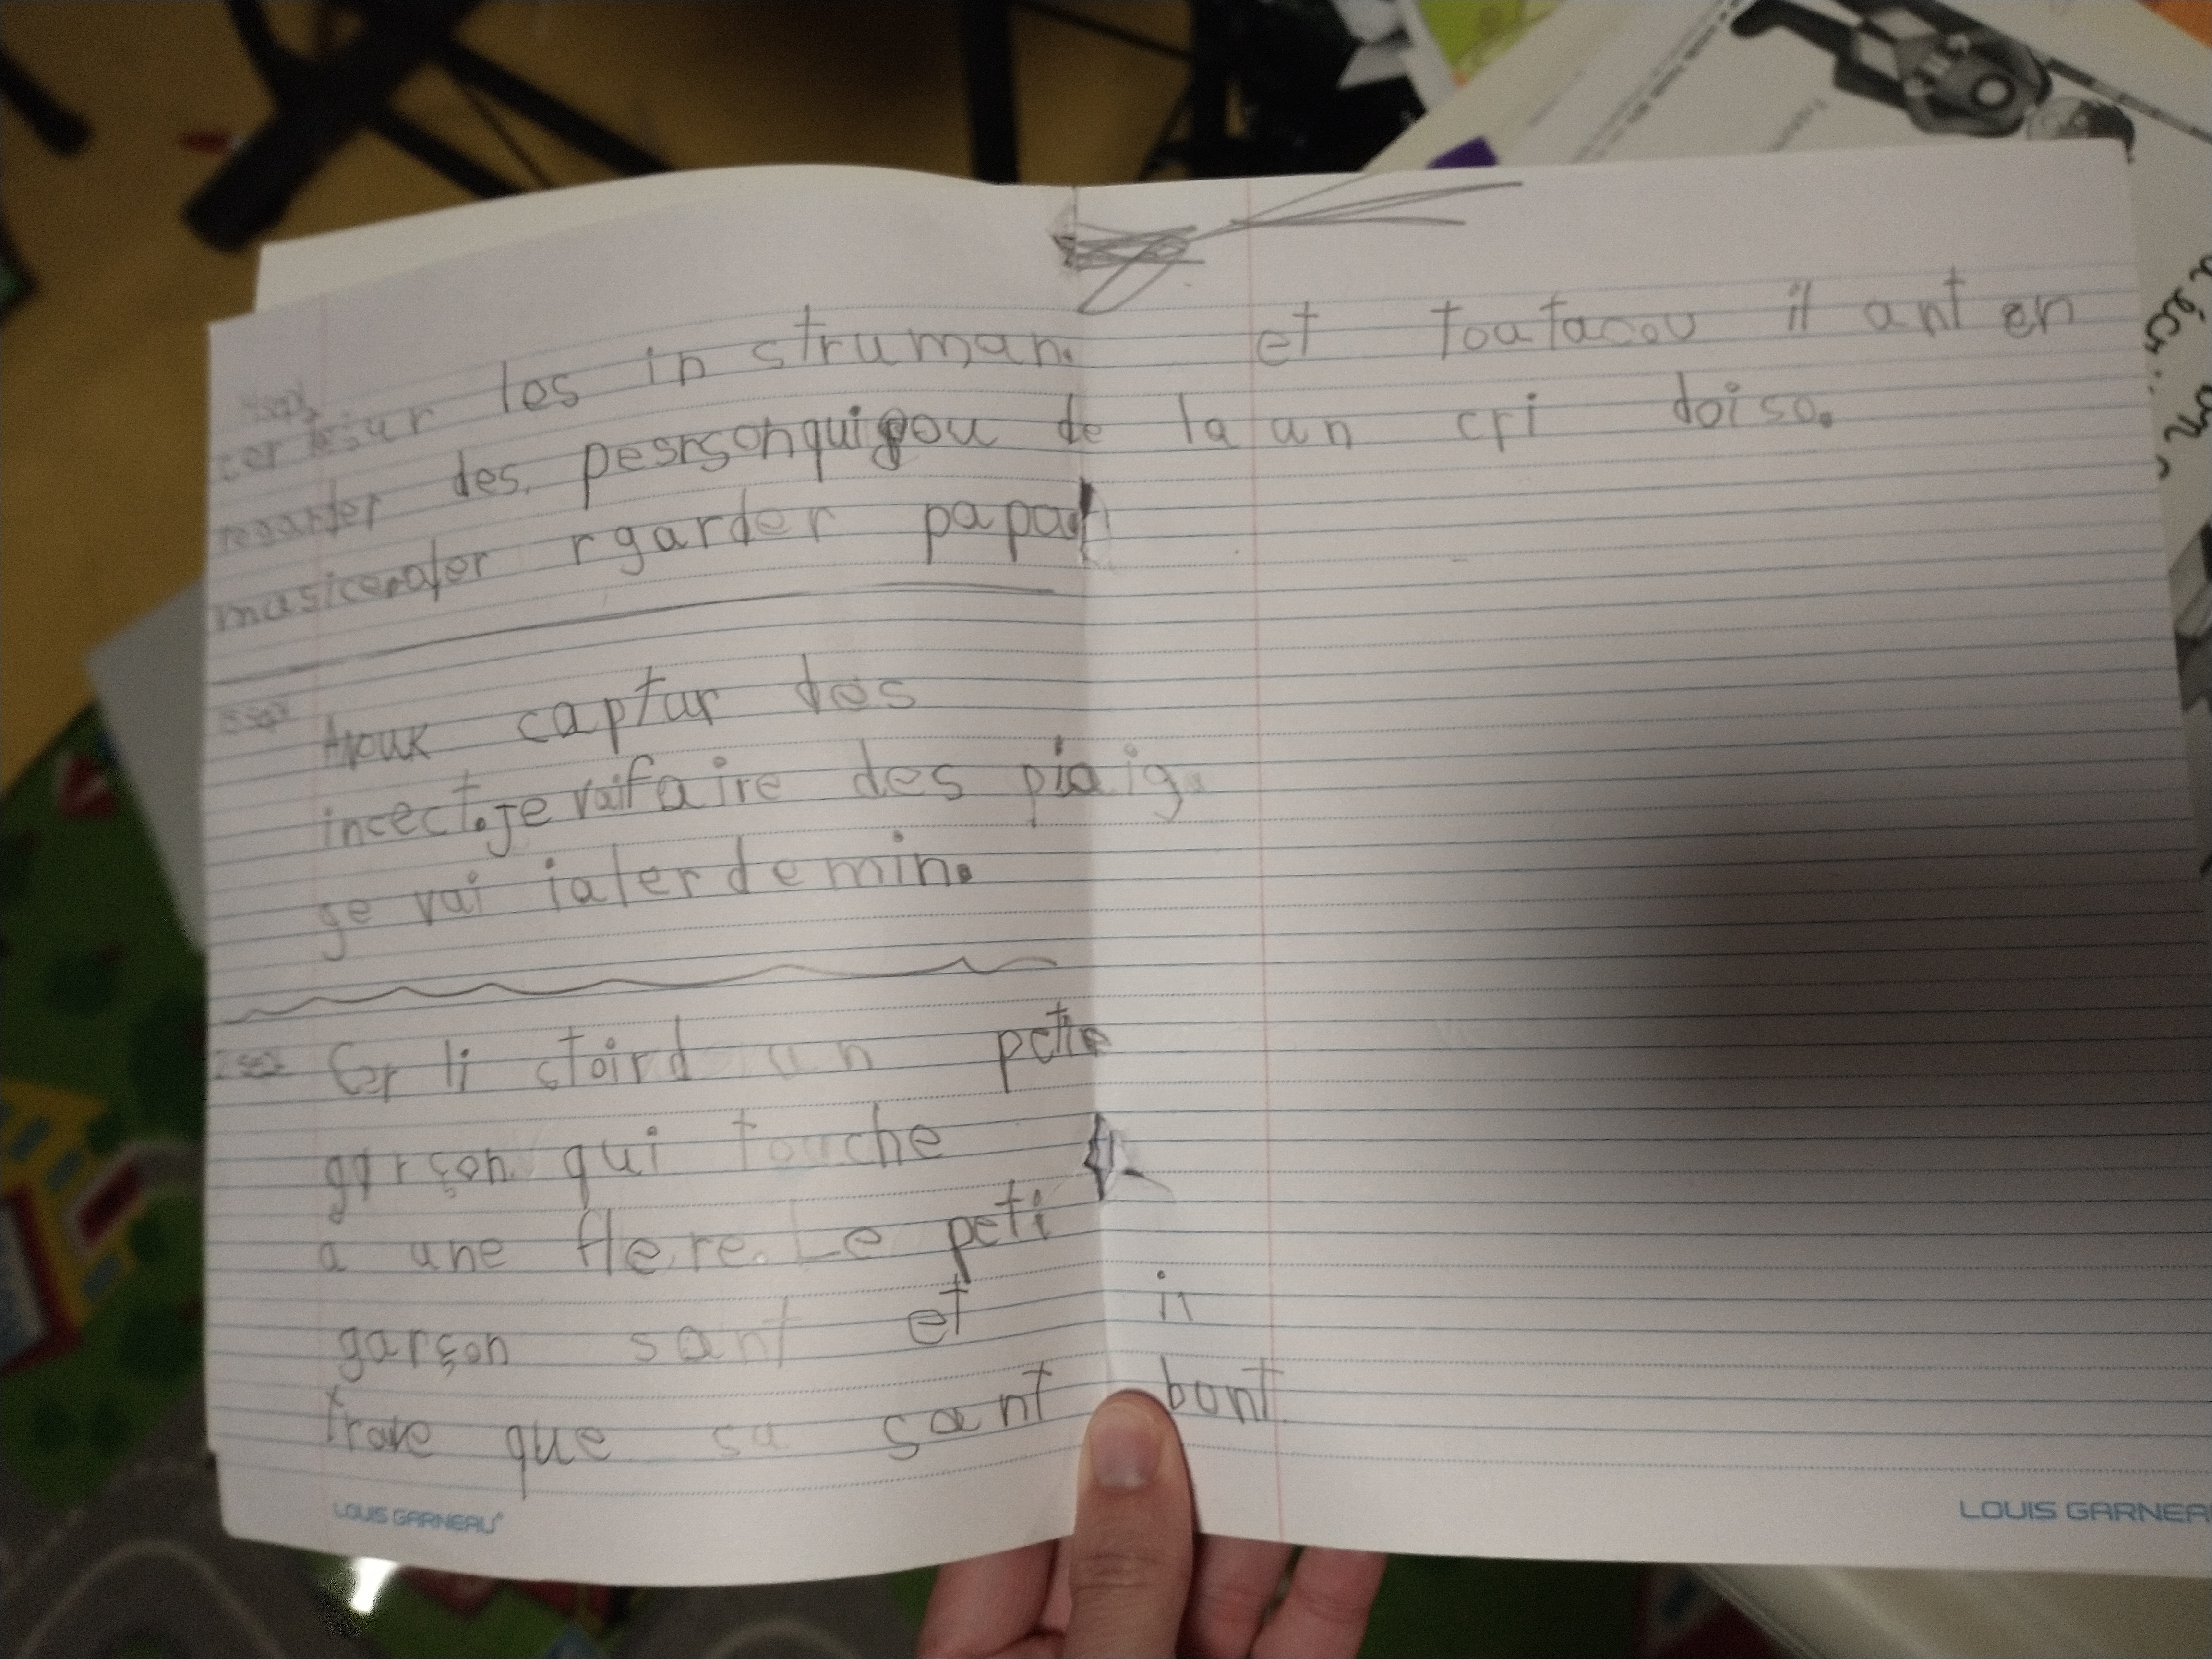 ter sur les in struman.
regarder des. pesrsonquijou de
musice.aler rgarder papa
captur des
incect.je vaifaire des piaig.
je vai ialer demin.
Cer li stoird un petie
garçon qui touche
a une flere. Le peti
garçon sant et il
trove que sa sant bont
LOUIS GARNEAU
et toutacou il ant en
la un cri doiso.
LOUIS GARNEA